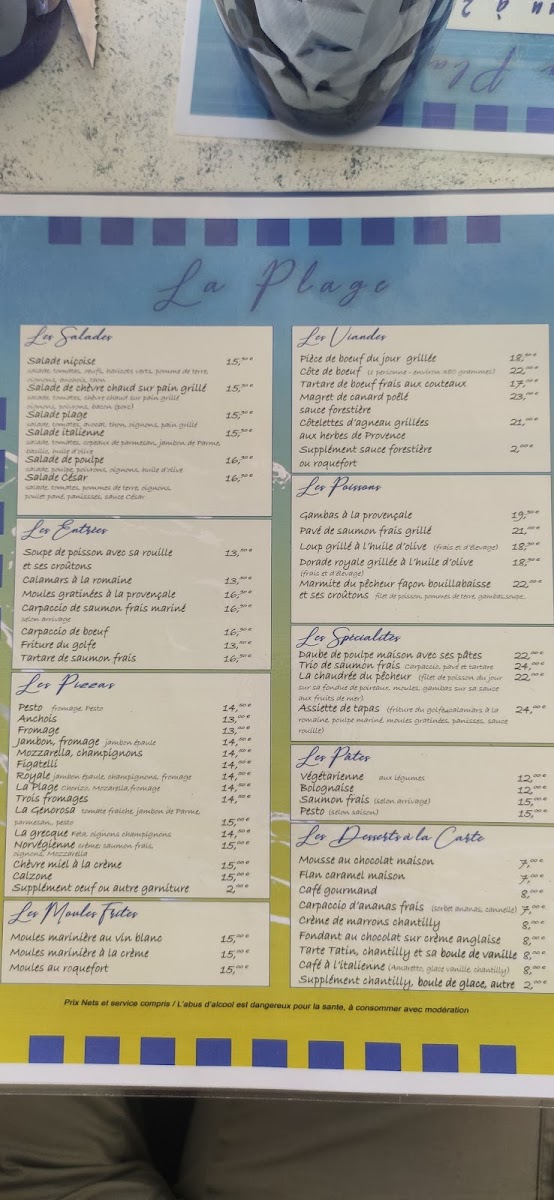 La Plage
Les Salades
Salade niçoise 15,⁵⁰ €
salade, tomates, oeufs, haricots verts, pomme de terre,
oignons, anchois, thon
Salade de chèvre chaud sur pain grillé 15,⁵⁰ €
salade, tomates, chèvre chaud sur pain grillé
oignons, poivrons, bacon (porc)
Salade plage 15,⁵⁰ €
salade, tomates, avocat, thon, oignons, pain grillé
Salade italienne 15,⁵⁰ €
salade, tomates, copeaux de parmesan, jambon de Parme,
basilic, huile d'olive
Salade de poulpe 16,⁵⁰ €
salade, poulpe, poivrons, oignons, huile d'olive
Salade César 16,⁵⁰ €
salade, tomates, pommes de terre, oignons,
poulet pané, panisses, sauce César
Les Entrées
Soupe de poisson avec sa rouille 13,⁵⁰ €
et ses croûtons
Calamars à la romaine 13,⁵⁰ €
Moules gratinées à la provençale 16,⁵⁰ €
Carpaccio de saumon frais mariné 16,⁵⁰ €
selon arrivage
Carpaccio de boeuf 16,⁵⁰ €
Friture du golfe 13,⁵⁰ €
Tartare de saumon frais 16,⁵⁰ €
Les Pizzas
Pesto fromage, Pesto 14,⁵⁰ €
Anchois 13,⁰⁰ €
Fromage 13,⁰⁰ €
Jambon, fromage jambon épaule 14,⁵⁰ €
Mozzarella, champignons 14,⁵⁰ €
Figatelli 14,⁵⁰ €
Royale jambon épaule, champignons, fromage 14,⁵⁰ €
La Plage Chorizo, Mozarella, fromage 14,⁵⁰ €
Trois fromages 14,⁵⁰ €
La Genorosa tomate fraîche, jambon de Parme,
parmesan, pesto 15,⁰⁰ €
La grecque Feta, oignons champignons 14,⁵⁰ €
Norvégienne crème, saumon frais, 15,⁰⁰ €
oignons, Mozzarella
Chèvre miel à la crème 15,⁰⁰ €
Calzone 15,⁰⁰ €
Supplément oeuf ou autre garniture 2,⁰⁰ €
Les Moules Frites
Moules marinière au vin blanc 15,⁰⁰ €
Moules marinière à la crème 15,⁰⁰ €
Moules au roquefort 15,⁰⁰ €
Les Viandes
Pièce de boeuf du jour grillée 18,⁵⁰ €
Côte de boeuf (1 personne - environ 350 grammes) 22,⁰⁰ €
Tartare de boeuf frais aux couteaux 17,⁰⁰ €
Magret de canard poêlé 23,⁰⁰ €
sauce forestière
Côtelettes d'agneau grillées 21,⁰⁰ €
aux herbes de Provence
Supplément sauce forestière 2,⁰⁰ €
ou roquefort
Les Poissons
Gambas à la provençale 19,⁵⁰ €
Pavé de saumon frais grillé 21,⁰⁰ €
Loup grillé à l'huile d'olive (frais et d'élevage) 18,⁵⁰ €
Dorade royale grillée à l'huile d'olive 18,⁵⁰ €
(frais et d'élevage)
Marmite du pêcheur façon bouillabaisse 22,⁰⁰ €
et ses croûtons filet de poisson, pommes de terre, gambas, soupe,
Les Spécialités
Daube de poulpe maison avec ses pâtes 22,⁰⁰ €
Trio de saumon frais Carpaccio, pavé et tartare 24,⁰⁰ €
La chaudrée du pêcheur (filet de poisson du jour 22,⁰⁰ €
sur sa fondue de poireaux, moules, gambas sur sa sauce
aux fruits de mer)
Assiette de tapas (friture du golfe, calamars à la 24,⁰⁰ €
romaine, poulpe mariné, moules gratinées, panisses, sauce
rouille)
Les Pâtes
Végétarienne aux légumes 12,⁰⁰ €
Bolognaise 12,⁰⁰ €
Saumon frais (selon arrivage) 15,⁰⁰ €
Pesto (selon saison) 15,⁰⁰ €
Les Desserts à la Carte
Mousse au chocolat maison 7,⁰⁰ €
Flan caramel maison 7,⁰⁰ €
Café gourmand 8,⁰⁰ €
Carpaccio d'ananas frais (sorbet ananas, cannelle) 7,⁰⁰ €
Crème de marrons chantilly 8,⁰⁰ €
Fondant au chocolat sur crème anglaise 8,⁰⁰ €
Tarte Tatin, chantilly et sa boule de vanille 8,⁰⁰ €
Café à l'italienne (Amaretto, glace vanille, chantilly) 8,⁰⁰ €
Supplément chantilly, boule de glace, autre 2,⁰⁰ €
Prix Nets et service compris / L'abus d'alcool est dangereux pour la sante, à consommer avec modération